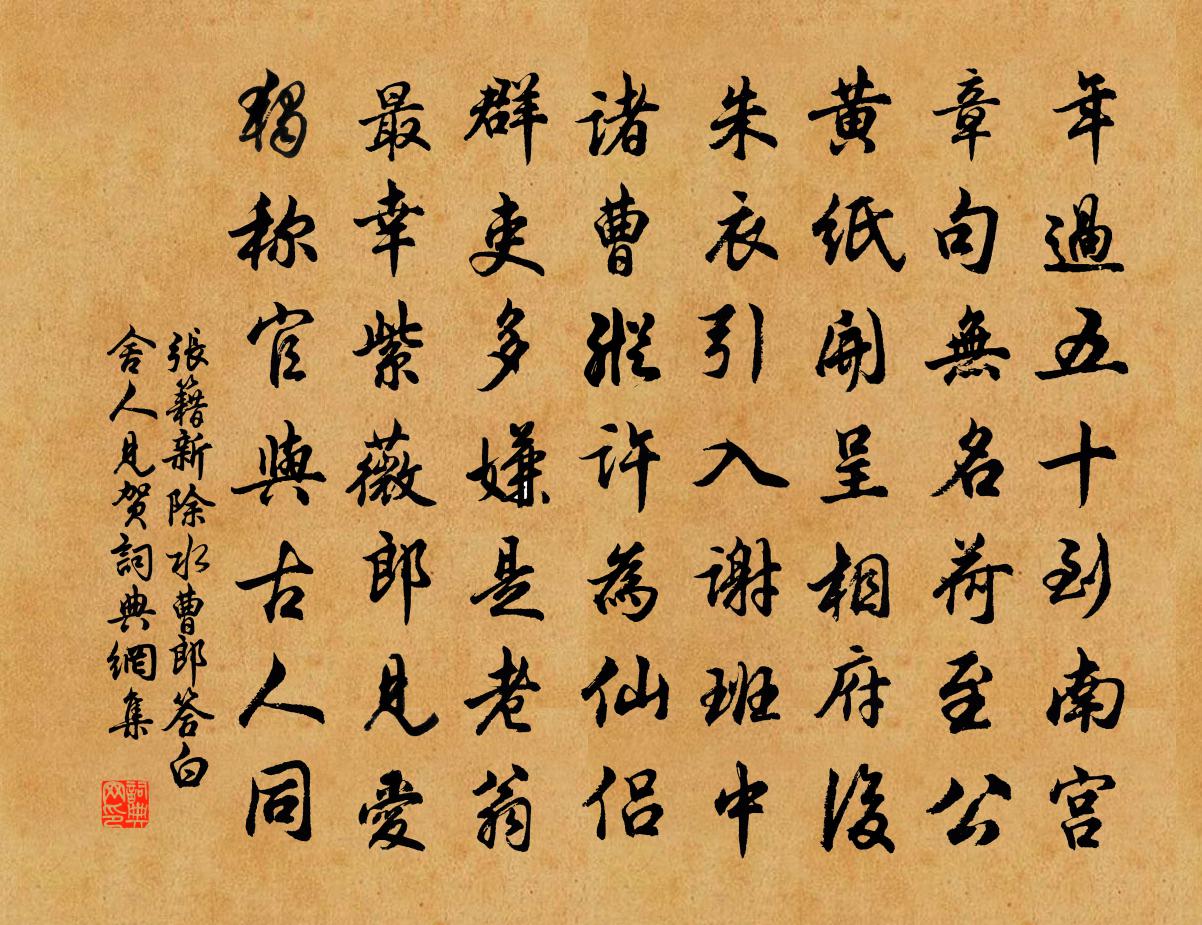 年過五十到南宮
章句無名荷至公
黃紙開呈相府後
朱衣引入謝班中
諸曹縱許為仙侶
群吏多嫌是老翁
最幸紫薇郎見愛
獨称官與古人同
張籍新除水曹郎答白
舍人見贺詞典網集
詞典
网印